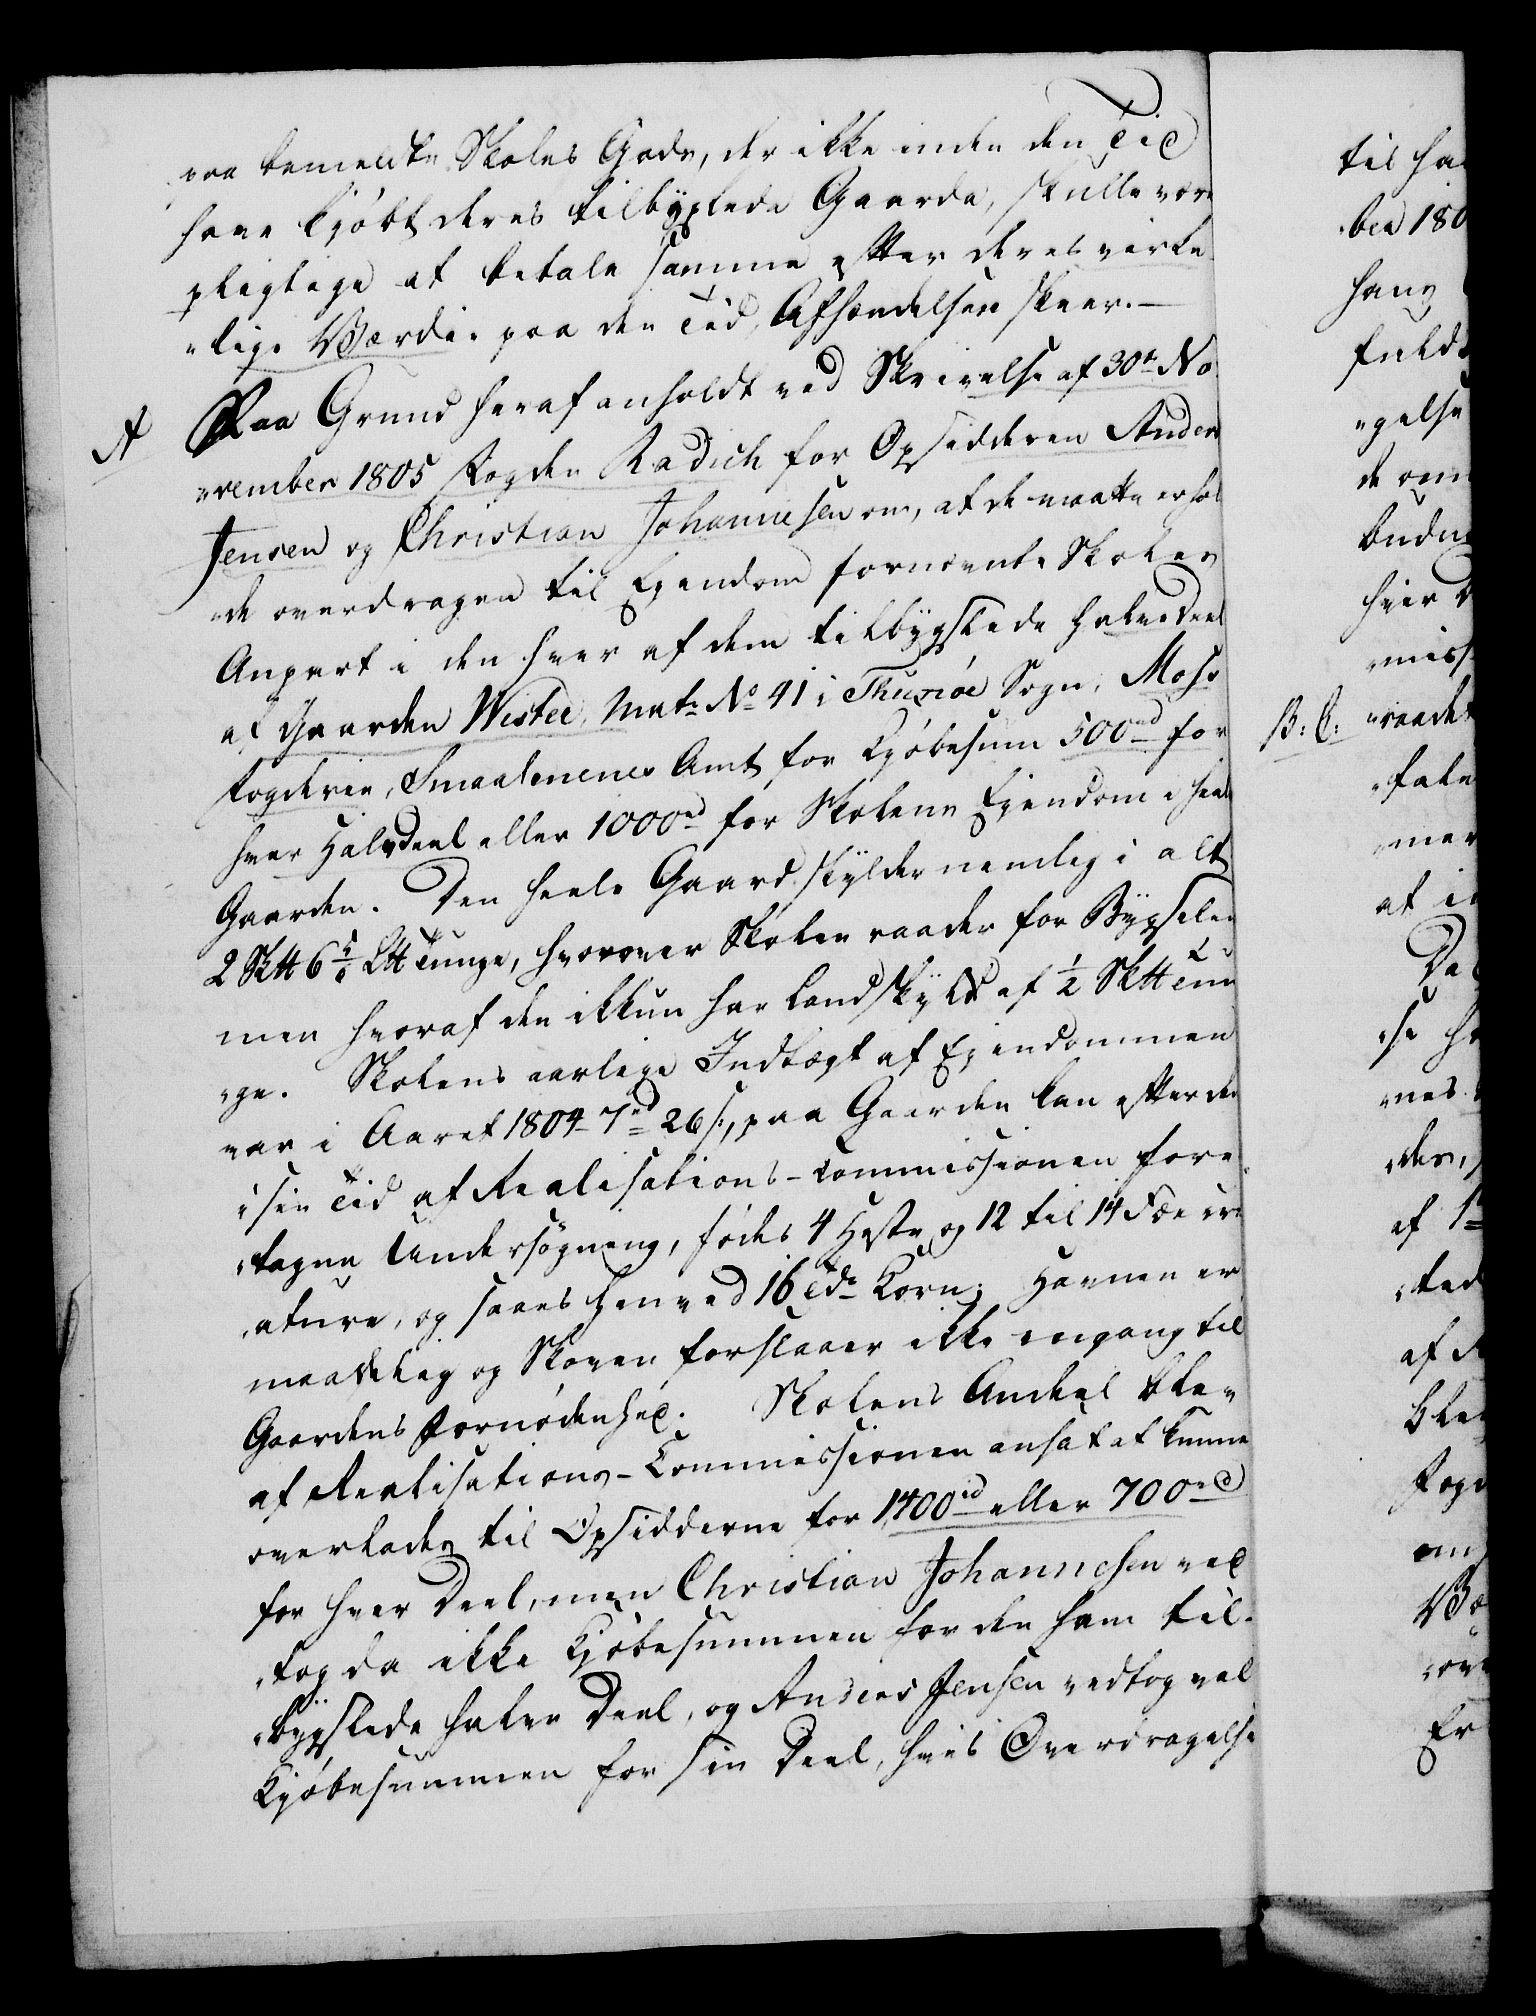 paa bemeldte Skoles Gods, der ikke inden den Tid
have kjøbt deres tilbyxlede Gaarde, skulle være
pligtige at betale samme efter deres virke
„lige Værdie paa den Tid, Afhændelsen skeer.—
A Paa Grund heraf anholdt ved Skrivelse af 30te No
„vember 1805 Fogden Radich for Opsidderen Anders
Jensen og Christian Johannesen om, at de maatte erhol
„de overdragen til Ejendom fornævnte Skoles
Anpart i den hver af dem tilbygslede Halvedeel
af Gaarden Wister, Matr. No 41 i Thunøe Sogn, Moss
Fogderie, Smaalenenes Amt, for Kjøbesum 500rd for
hver Halvdeel eller 1000rd for Skolens Ejendom i heele
Gaarden. Den heele Gaard skylder nemlig i alt
2 Sktt 6 Ltt Tunge, hvorover Skolen raader for Bygselen
men hvoraf den ikkun har Landskyld af ½ Sktt Tun
„ge. Skolens aarlige Indtægt af Ejendommen
var i Aaret 1804 7rd 26 s., paa Gaarden kan efter den
i sin Tid af Realisations-Commissionen fore
„tagne Undersøgning, fødes 4 Heste og 12 til 14 Fæe cre
„ature, og saaes henved 16 Tdr Korn; Havnen er
maadelig og Skoven forslaaer ikke engang til
Gaardens Fornødenhed. Skolens Andeel blev
af Realisations-Commissionen ansat at kunne
overlades til Opsidderne for 1400rd eller 700rd
for hver Deel, men Christian Johannesen ved
„tog da ikke Kjøbesummen for den ham til
„bygslede halve Deel, og Anders Jensen vedtog vel
Kjøbesummen for sin Deel, hvis Overdragelse
til ha
ber 180
hans
fuldt
„gelse
de om
budne
hver
miss
B: C: „raadet
„tale
mer
at i
Da
se h
nes
des,
af 1
„ted
af R
blev
Fog
an
Væ
ov
Er